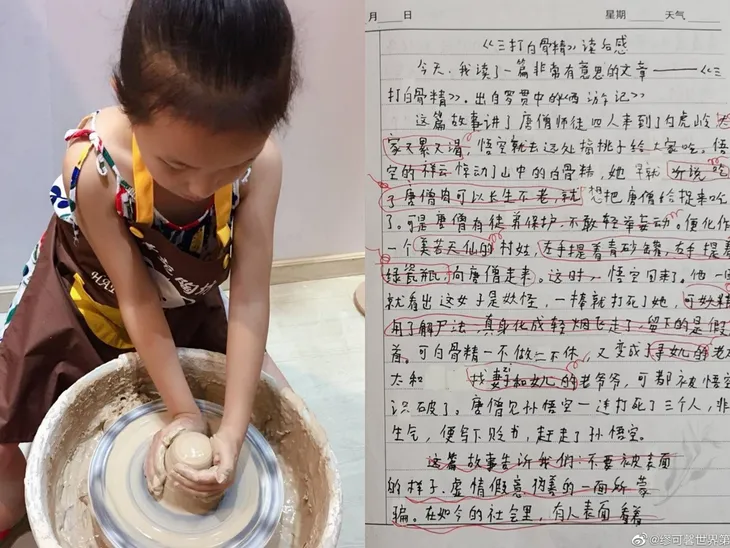 月 日 星期 天气
《三打白骨精》读后感
今天,我读了一篇非常有意思的文章——《三
打白骨精》.出自罗贯中的《西游记》
这篇故事讲了唐僧师徒四人来到了白虎岭,大
家又累又渴,悟空就去远处摘桃子给大家吃。悟
空的祥云惊动了山中的白骨精,她早就听说吃
了唐僧肉可以长生不老,就想把唐僧给捉来吃
了。可是唐僧有徒弟保护,不敢轻举妄动。便化作
一个美若天仙的村姑,左手提着青砂罐,右手提着
绿瓷瓶,向唐僧走来。这时,悟空回来了。他一
就看出这女子是妖怪,一棒就打死了她,可妖精
用了解尸法,真身化成轻烟飞走了,留下的是假
首。可白骨精一不做二不休,又变成了寻女儿的老
太和 找妻子和女儿的老爷爷,可都被悟空
识破了。唐僧见孙悟空一连打死了三个人,非
生气,便写下贬书,赶走了孙悟空。
这篇故事告诉我们:不要被表面
的样子,虚情假意伪善的一面所蒙
骗。在如今的社会里,有人表面看着
@缪可馨世界第